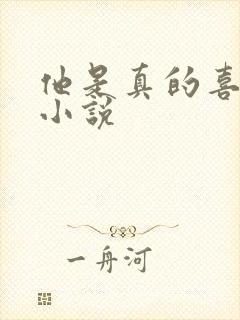 他是真的喜
小説
一舟河